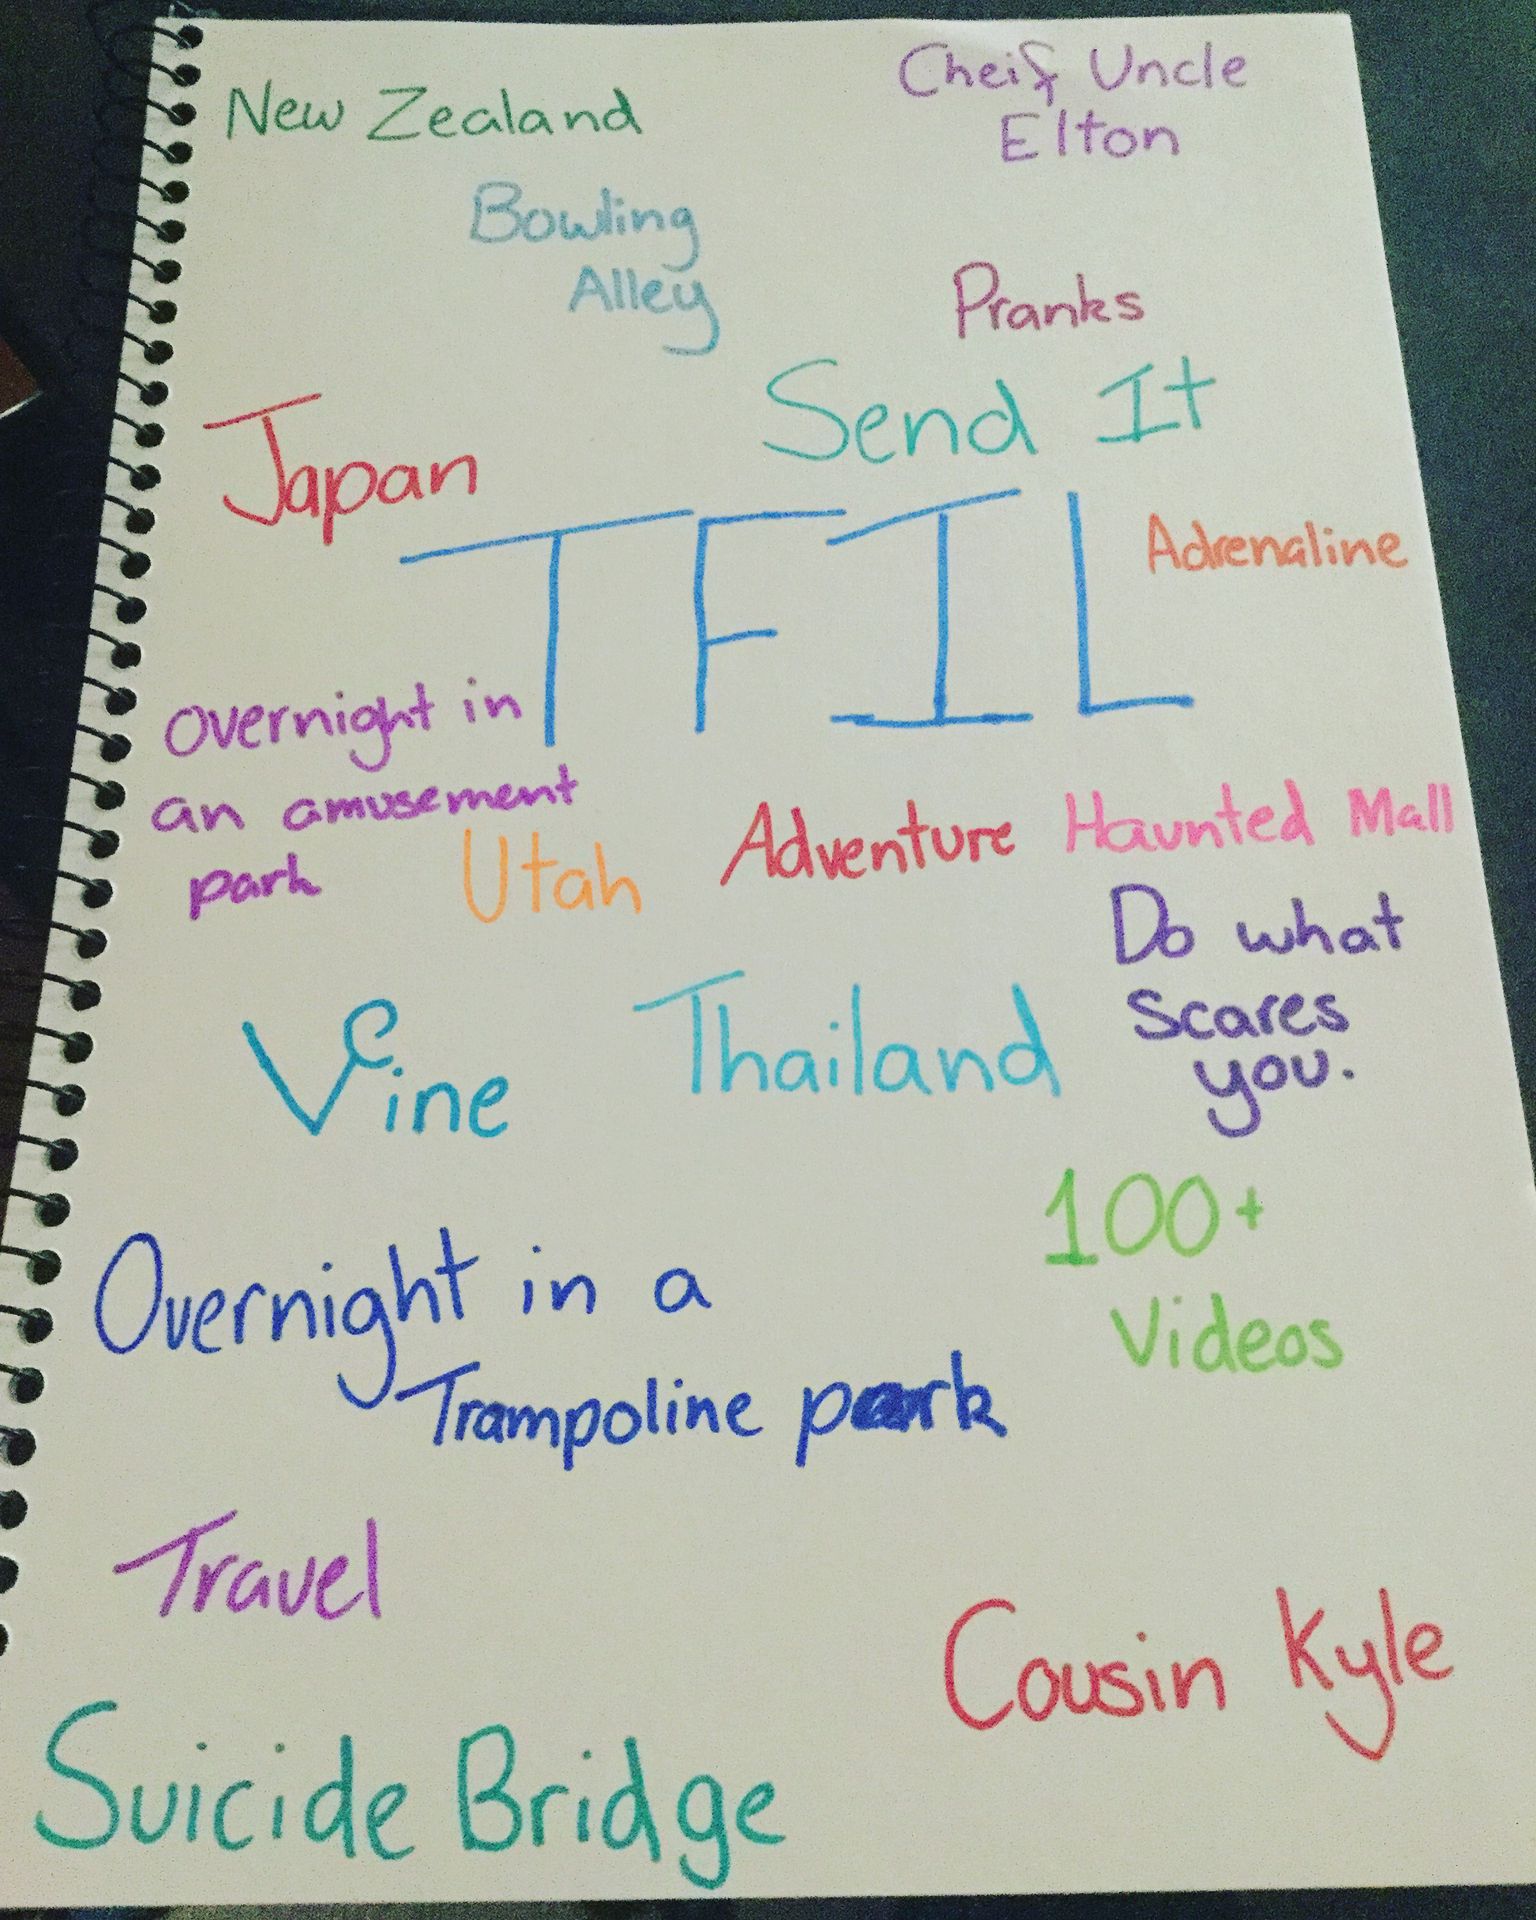 New Zealand
Cheif Uncle
Elton
Bowling
Alley
Pranks
Send It
Japan
TFIL
Adrenaline
Overnight in
an amusement
park
Utah
Adventure
Haunted Mall
Do what
scares
you.
Vine
Thailand
100+
Videos
Overnight in a
Trampoline park
Travel
Cousin Kyle
Suicide Bridge